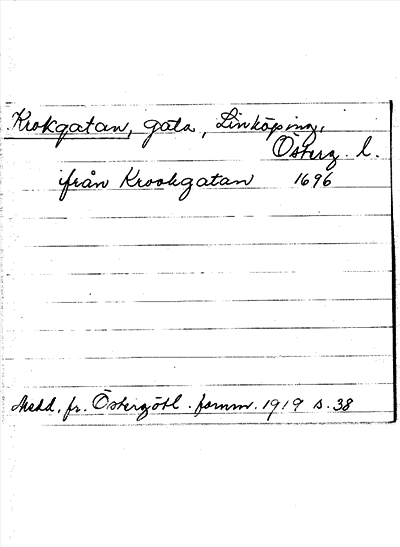 Krokgatan, gata, Linköping,
Österg. l.
från Krookgatan 1696
Medd. fr. Östergötl. fornm. 1919 s. 38